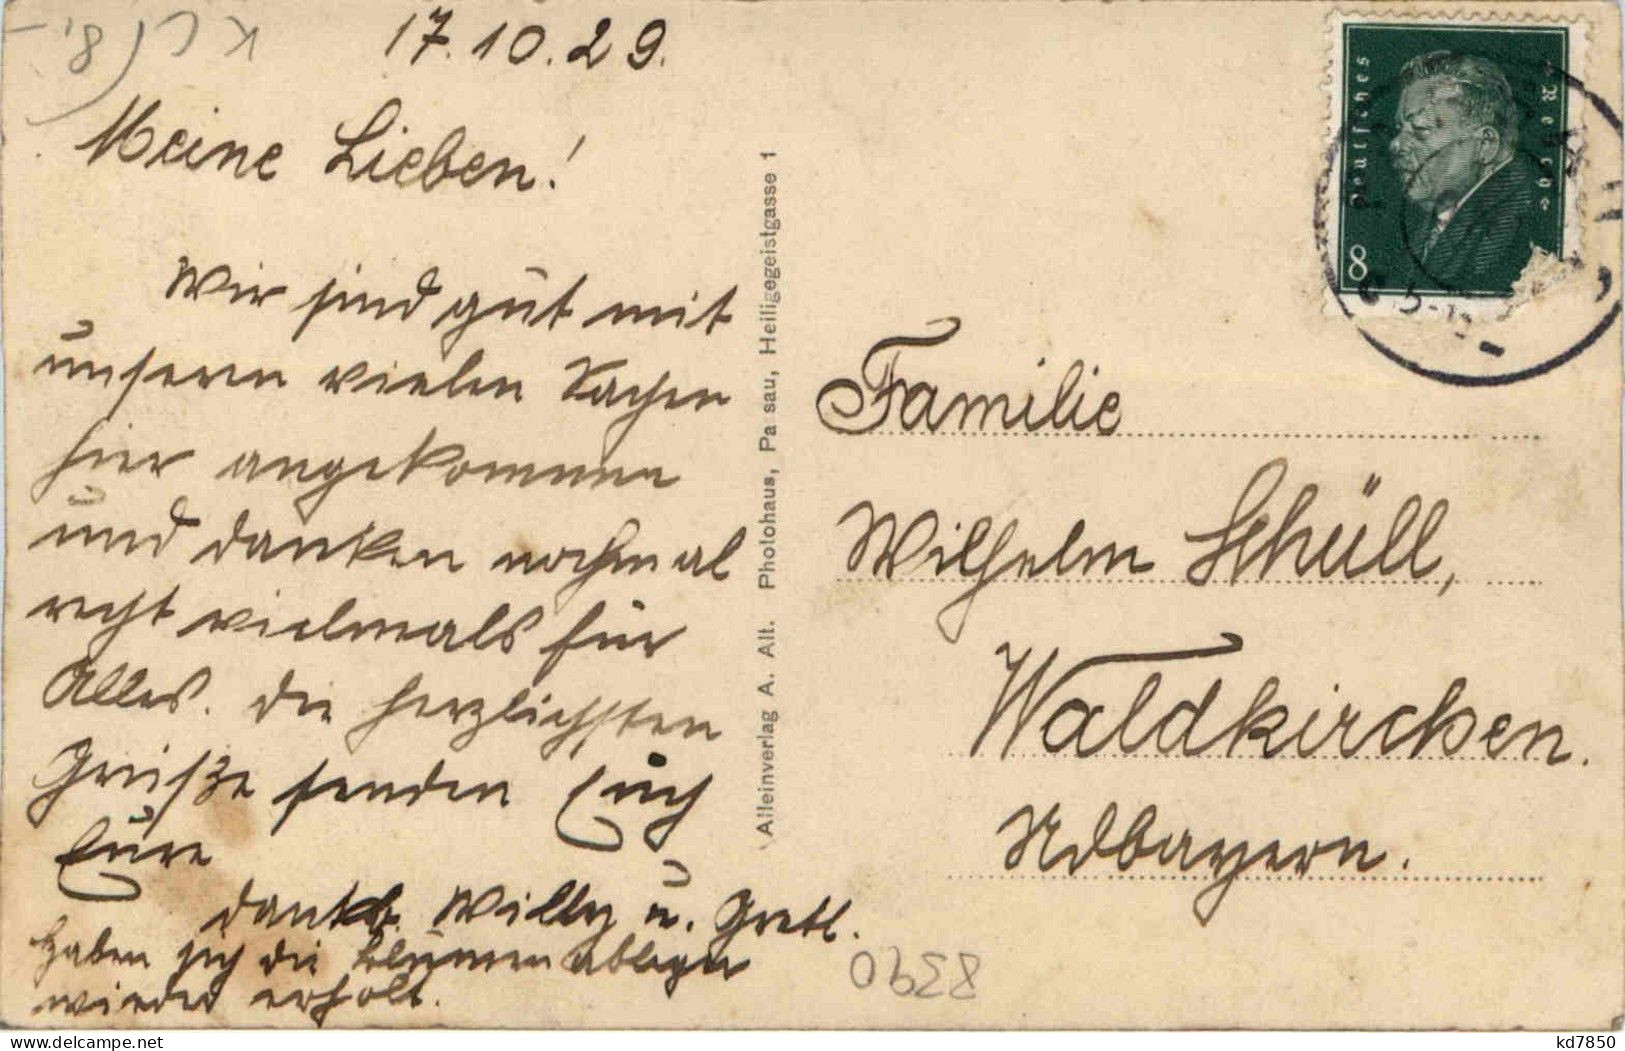 17.10.29.
Meine Lieben!
Wir sind gut mit
unseren vielen Sachen
hier angekommen
und danken nochmal
recht vielmals für
Alles. Die herzlichsten
Grüße senden Euch
Eure
dankb. Willy u. Gretl.
Haben sich die Blumenableger
wieder erholt.
Alleinverlag A. Alt. Photohaus, Pa sau, Heiligegeistgasse 1
Deutsches Reich
8
Familie
Wilhelm Schüll,
Waldkirchen.
Ndbayern.
0628
delcampe.net
kd7850